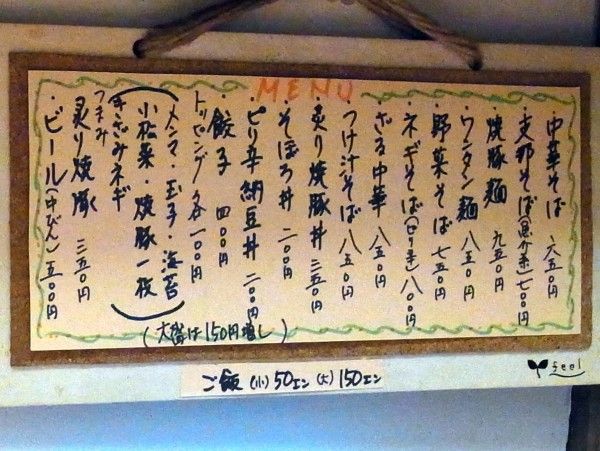 MENU
・中華そば 六五〇円
・支那そば(魚介系)七〇〇円
・焼豚麺 九五〇円
・ワンタン麺 八五〇円
・野菜そば 七五〇円
・ネギそば(ピリ辛) 八〇〇円
・ざる中華 八五〇円
・つけ汁そば 八五〇円
・炙り焼豚丼 三五〇円
・そぼろ丼 二〇〇円
・ピリ辛納豆丼 二〇〇円
・餃子 四〇〇円
トッピング各一〇〇円
(メンマ・玉子・海苔
小松菜・焼豚一枚
きざみネギ)
つまみ
炙り焼豚 三五〇円
・ビール(中びん)五〇〇円
(大盛は150円増し)
feel
ご飯 (小)50エン (大)150エン